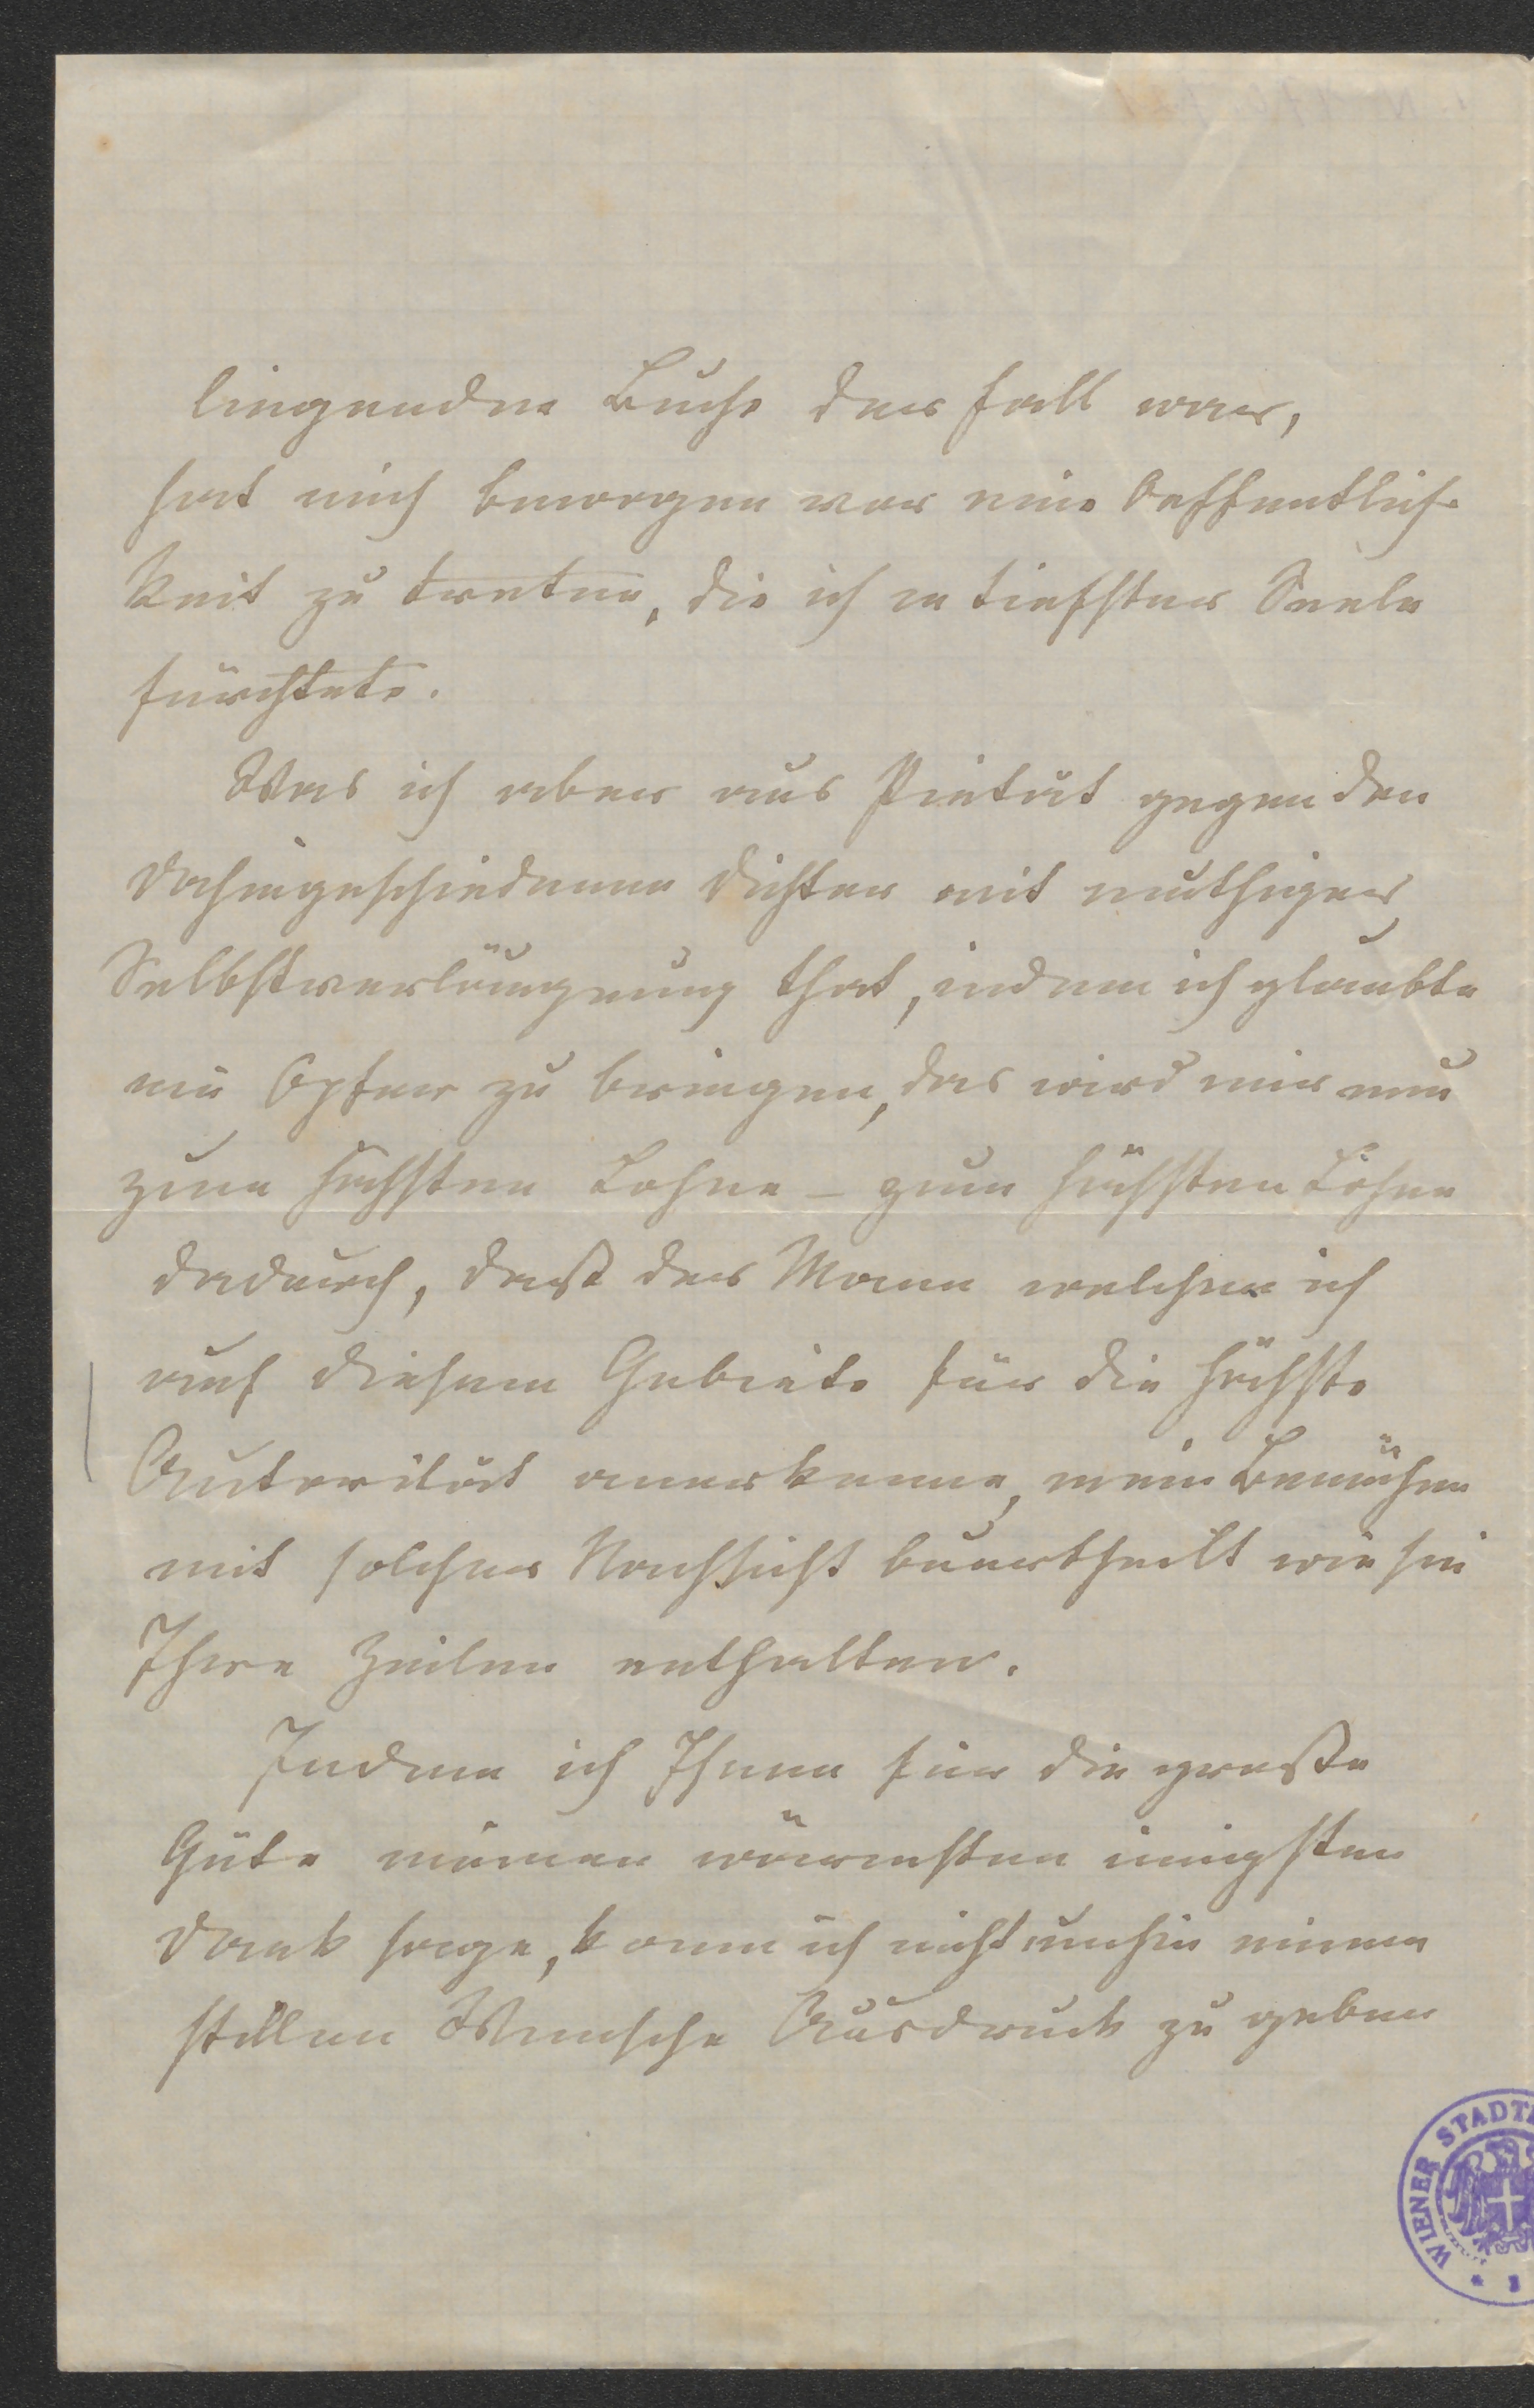 liegenden Buche der Fall war,
hat mich bewogen vor eine Oeffentlich-
keit zu treten, die ich in tiefster Seele
fürchtete.
Was ich aber aus Pietät gegen den
dahingeschiedenen Dichter mit muthiger
Selbstverläugnung that, indem ich glaubte
ein Opfer zu bringen, das wird mir nun
zum höchsten Lohne – zum höchsten Lohne
dadurch, daß der Mann welchen ich
auf diesem Gebiete für die höchste
Autorität anerkenne, mein Bemühen
mit solcher Nachsicht beurtheilt wie sie
Ihre Zeilen enthalten.
Indem ich Ihnen für die große
Güte meinen wärmsten innigsten
Dank sage, kann ich nicht umhin einem
stillen Wunsche Ausdruck zu geben
WIENER STADT